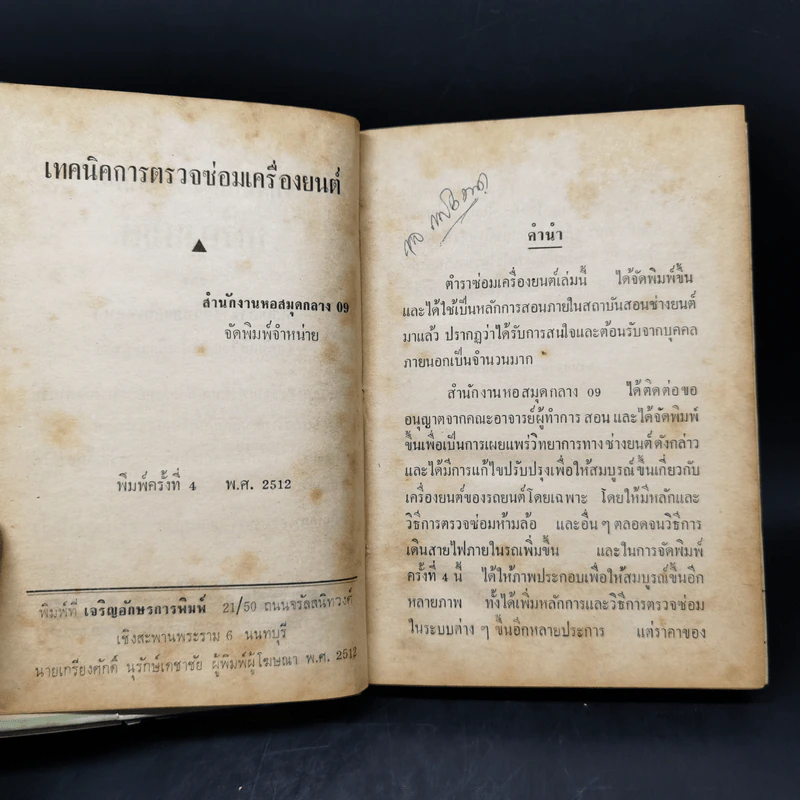 เทคนิคการตรวจซ่อมเครื่องยนต์
สำนักงานหอสมุดกลาง 09
จัดพิมพ์จำหน่าย
พิมพ์ครั้งที่ 4 พ.ศ. 2512
พิมพ์ที่ เจริญอักษรการพิมพ์ 21/50 ถนนจรัลสนิทวงศ์
เชิงสะพานพระราม 6 นนทบุรี
นายเกรียงศักดิ์ นุรักษ์เดชาชัย ผู้พิมพ์ผู้โฆษณา พ.ศ. 2512
คำนำ
ตำราซ่อมเครื่องยนต์เล่มนี้ ได้จัดพิมพ์ขึ้น
และได้ใช้เป็นหลักการสอนภายในสถาบันสอนช่างยนต์
มาแล้ว ปรากฏว่าได้รับการสนใจและต้อนรับจากบุคคล
ภายนอกเป็นจำนวนมาก
สำนักงานหอสมุดกลาง 09 ได้ติดต่อขอ
อนุญาตจากคณะอาจารย์ผู้ทำการ สอน และได้จัดพิมพ์
ขึ้นเพื่อเป็นการเผยแพร่วิทยาการทาง ช่างยนต์ ดังกล่าว
และได้มีการแก้ไขปรับปรุงเพื่อให้สมบูรณ์ ขึ้นเกี่ยวกับ
เครื่องยนต์ของรถยนต์โดยเฉพาะ โดยให้มีหลักและ
วิธีการตรวจซ่อมห้ามล้อ และอื่น ๆ ตลอดจนวิธีการ
เดินสายไฟภายในรถเพิ่มขึ้น และในการจัดพิมพ์
ครั้งที่ 4 นี้ ได้ให้ภาพประกอบเพื่อให้สมบูรณ์ขึ้นอีก
หลายภาพ ทั้งได้เพิ่มหลักการและวิธีการตรวจซ่อม
ในระบบต่าง ๆ ขึ้นอีกหลายประการ แต่ราคาของ